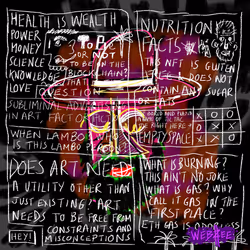 HEALTH IS WEALTH
POWER
MONEY
SCIENCE
KNOWLEDGE
LOVE
? TO B
OR NOT
TO BE ON THE
BLOCKCHAIN?
THAT
QUESTION
SUBLIMINAL ADVERTS
IN ART, FACT OR
WHEN LAMBO? WHO
IS THIS LAMBO PERSON?
NUTRITION
FACTS
THIS NFT IS GLUTEN
FREE & DOES NOT
CONTAIN SUGAR
OR FATS
RIGHT HERE
EMPTY SPACE
X O O
DOES ART NEED
A UTILITY OTHER THAN
JUST EXISTING? ART
NEEDS TO BE FREE FROM
CONSTRAINTS AND
MISCONCEPTIONS
HEY!
WHAT IS BURNING?
THIS AIN'T NO JOKE
WHAT IS GAS? WHY
CALL IT GAS IN THE
FIRST PLACE?
ETH GAS IS ODORLESS